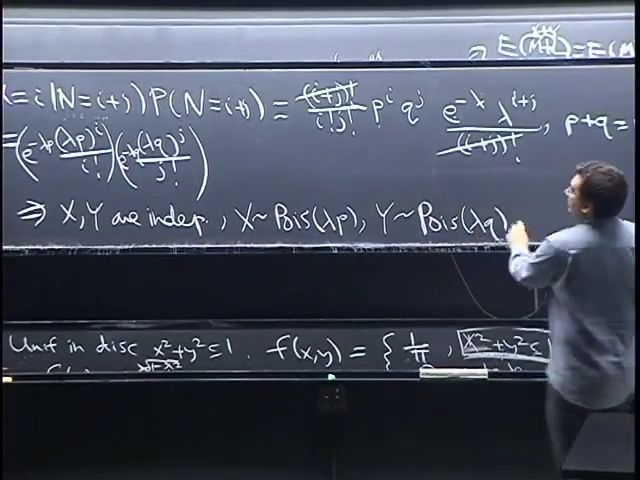 ⇒ E(|M+L|)=E(M
=i|N=i+j)P(N=i+j) = (i+j)!/(i!j!) p^i q^j e^{-λ} λ^{i+j}/(i+j)!, p+q=
=(e^{-λp}(λp)^i/i!)(e^{-λq}(λq)^j/j!)
⇒ X,Y are indep., X~Pois(λp), Y~Pois(λq)
Unif in disc x²+y²≤1. f(x,y) = { 1/π, x²+y²≤